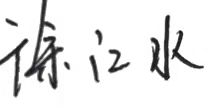 徐江水